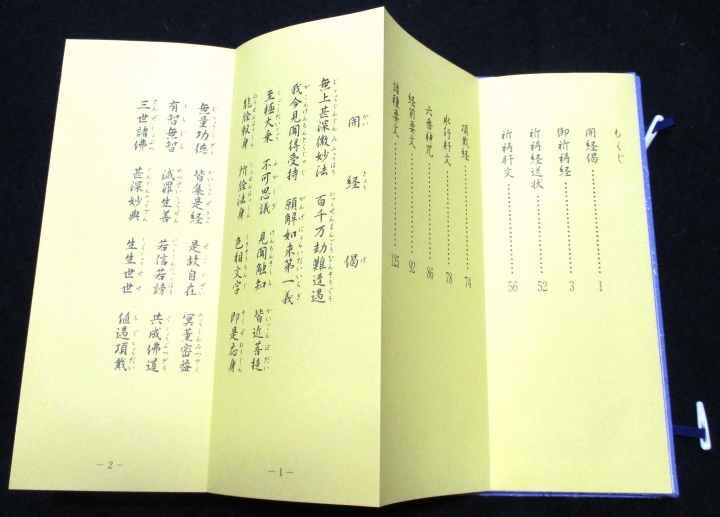 もくじ
開経偈 1
御祈祷経 3
祈祷経送状 52
祈祷肝文 56
頂戴経 74
水行肝文 78
六番神咒 86
経前要文 92
諸種要文 125
開経偈
かいきょうげ
無上甚深微妙法 百千万劫難遭遇
我今見聞得受持 願解如来第一義
至極大乗 不可思議 見聞触知 皆近菩提
能詮報身 所詮法身 色相文字 即是応身
－1－
無量功徳 皆集是経 是故自在 冥薫密益
有智無智 滅罪生善 若信若謗 共成佛道
三世諸佛 甚深妙典 生生世世 値遇頂戴
－2－